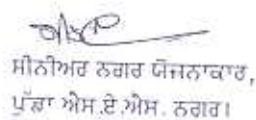 ਸੀਨੀਅਰ ਨਗਰ ਯੋਜਨਾਕਾਰ,
ਪੁੱਡਾ ਐਸ.ਏ.ਐਸ. ਨਗਰ।